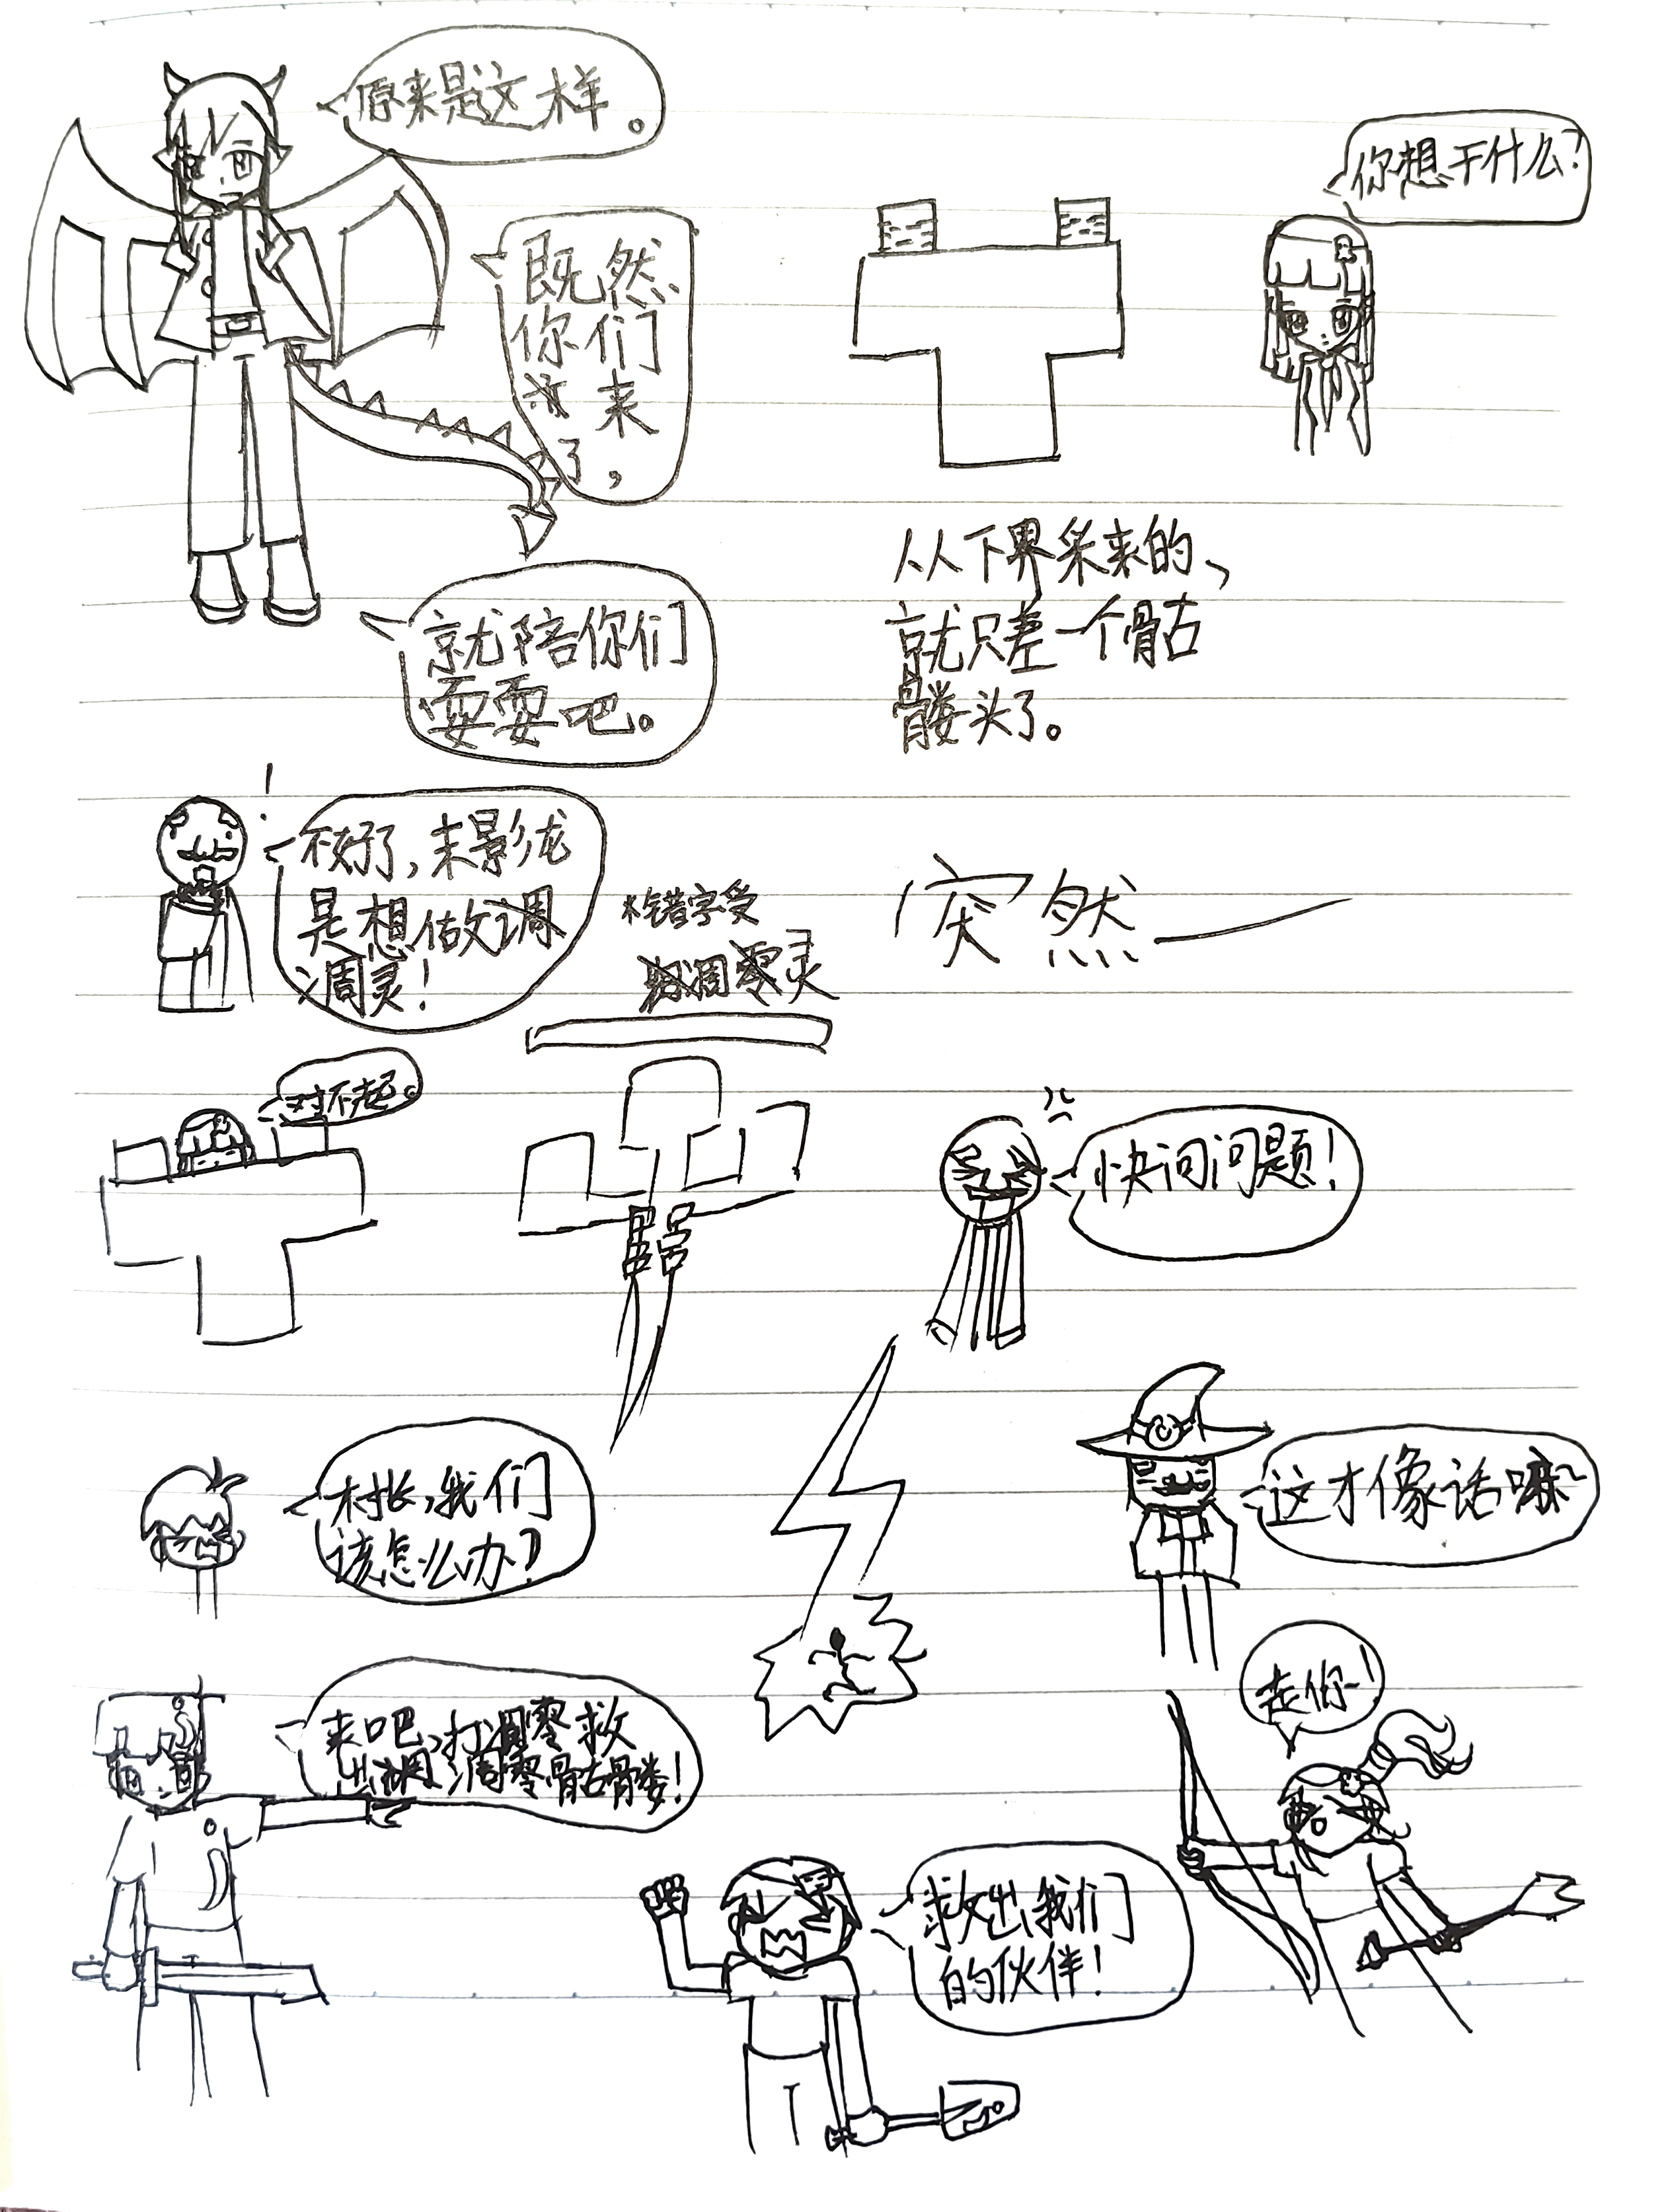 原来是这样。
你想干什么？
既然
你们
来
了，
从从下界采来的、
就只差一个骷
髅头了。
就陪你们
耍耍吧。
不好了，末影龙
是想做凋
凋灵！
错字受
凋零灵
突然—
对不起。
快问问题！
村长，我们
该怎么办？
这才像话嘛~
走你~！
来吧，打凋零救
出凋凋零骷髅！
救出我们
的伙伴！